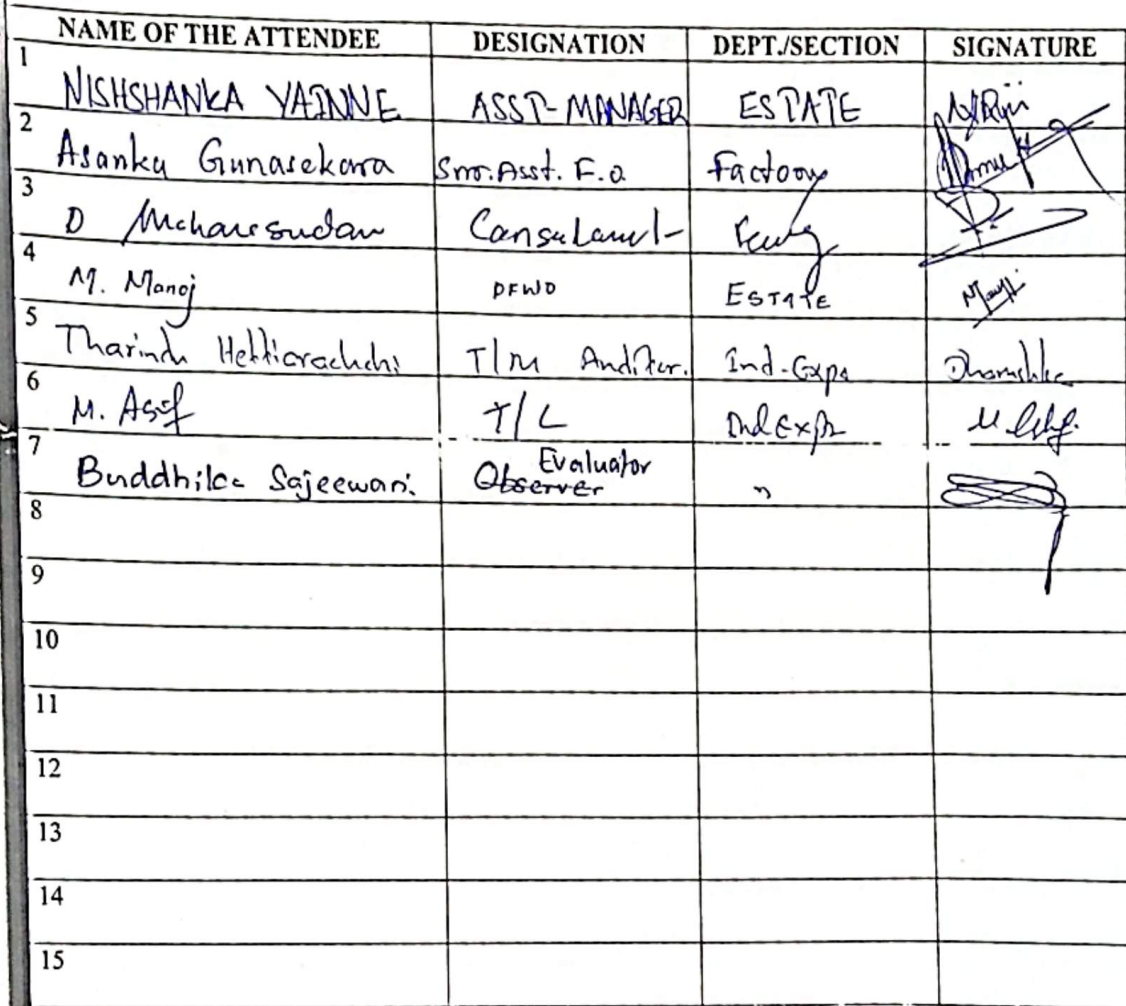 NAME OF THE ATTENDEE DESIGNATION DEPT./SECTION SIGNATURE
1 NISHSHANKA YAINNE ASST-MANAGER ESTATE
2 Asanka Gunasekara Snr.Asst. F.O. Factory
3 D
4 M. Manoj DFWO ESTATE
5 Tharindu Hettiarachchi T/M Auditor. Ind-Expo
6 M. Asif T/L Ind Expo
7 Buddhika Sajeewani. Observer Evaluator "
8
9
10
11
12
13
14
15